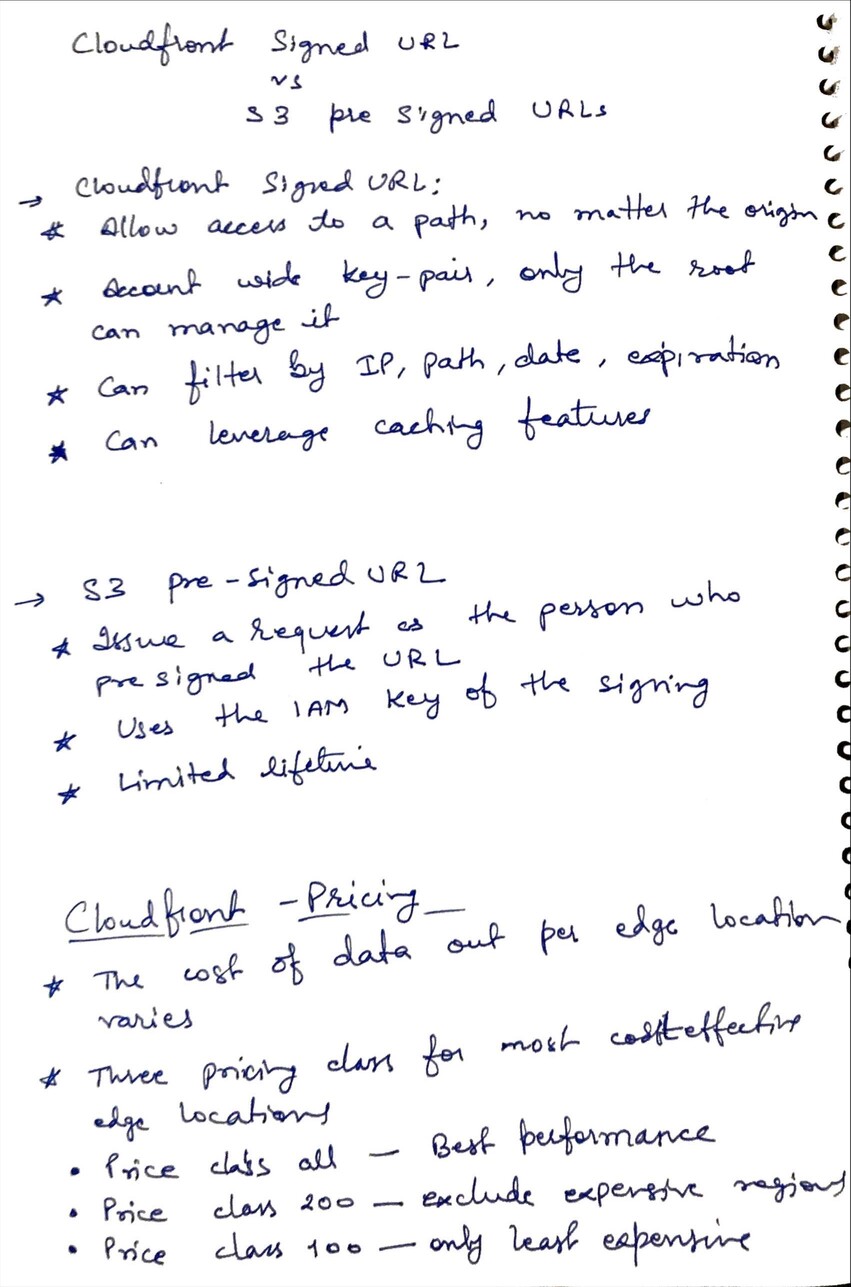 Cloudfront Signed URL
vs
S3 pre signed URLs
→ Cloudfront Signed URL:
* Allow access to a path, no matter the origin
* Account wide key-pair, only the root
can manage it
* Can filter by IP, path, date, expiration
* Can leverage caching features
→ S3 pre-signed URL
* Issue a request as the person who
pre signed the URL
* Uses the IAM key of the signing
* Limited lifetime
Cloudfront - Pricing
* The cost of data out per edge location
varies
* Three pricing class for most cost effective
edge locations
• Price class all — Best performance
• Price class 200 — exclude expensive regions
• Price class 100 — only least expensive